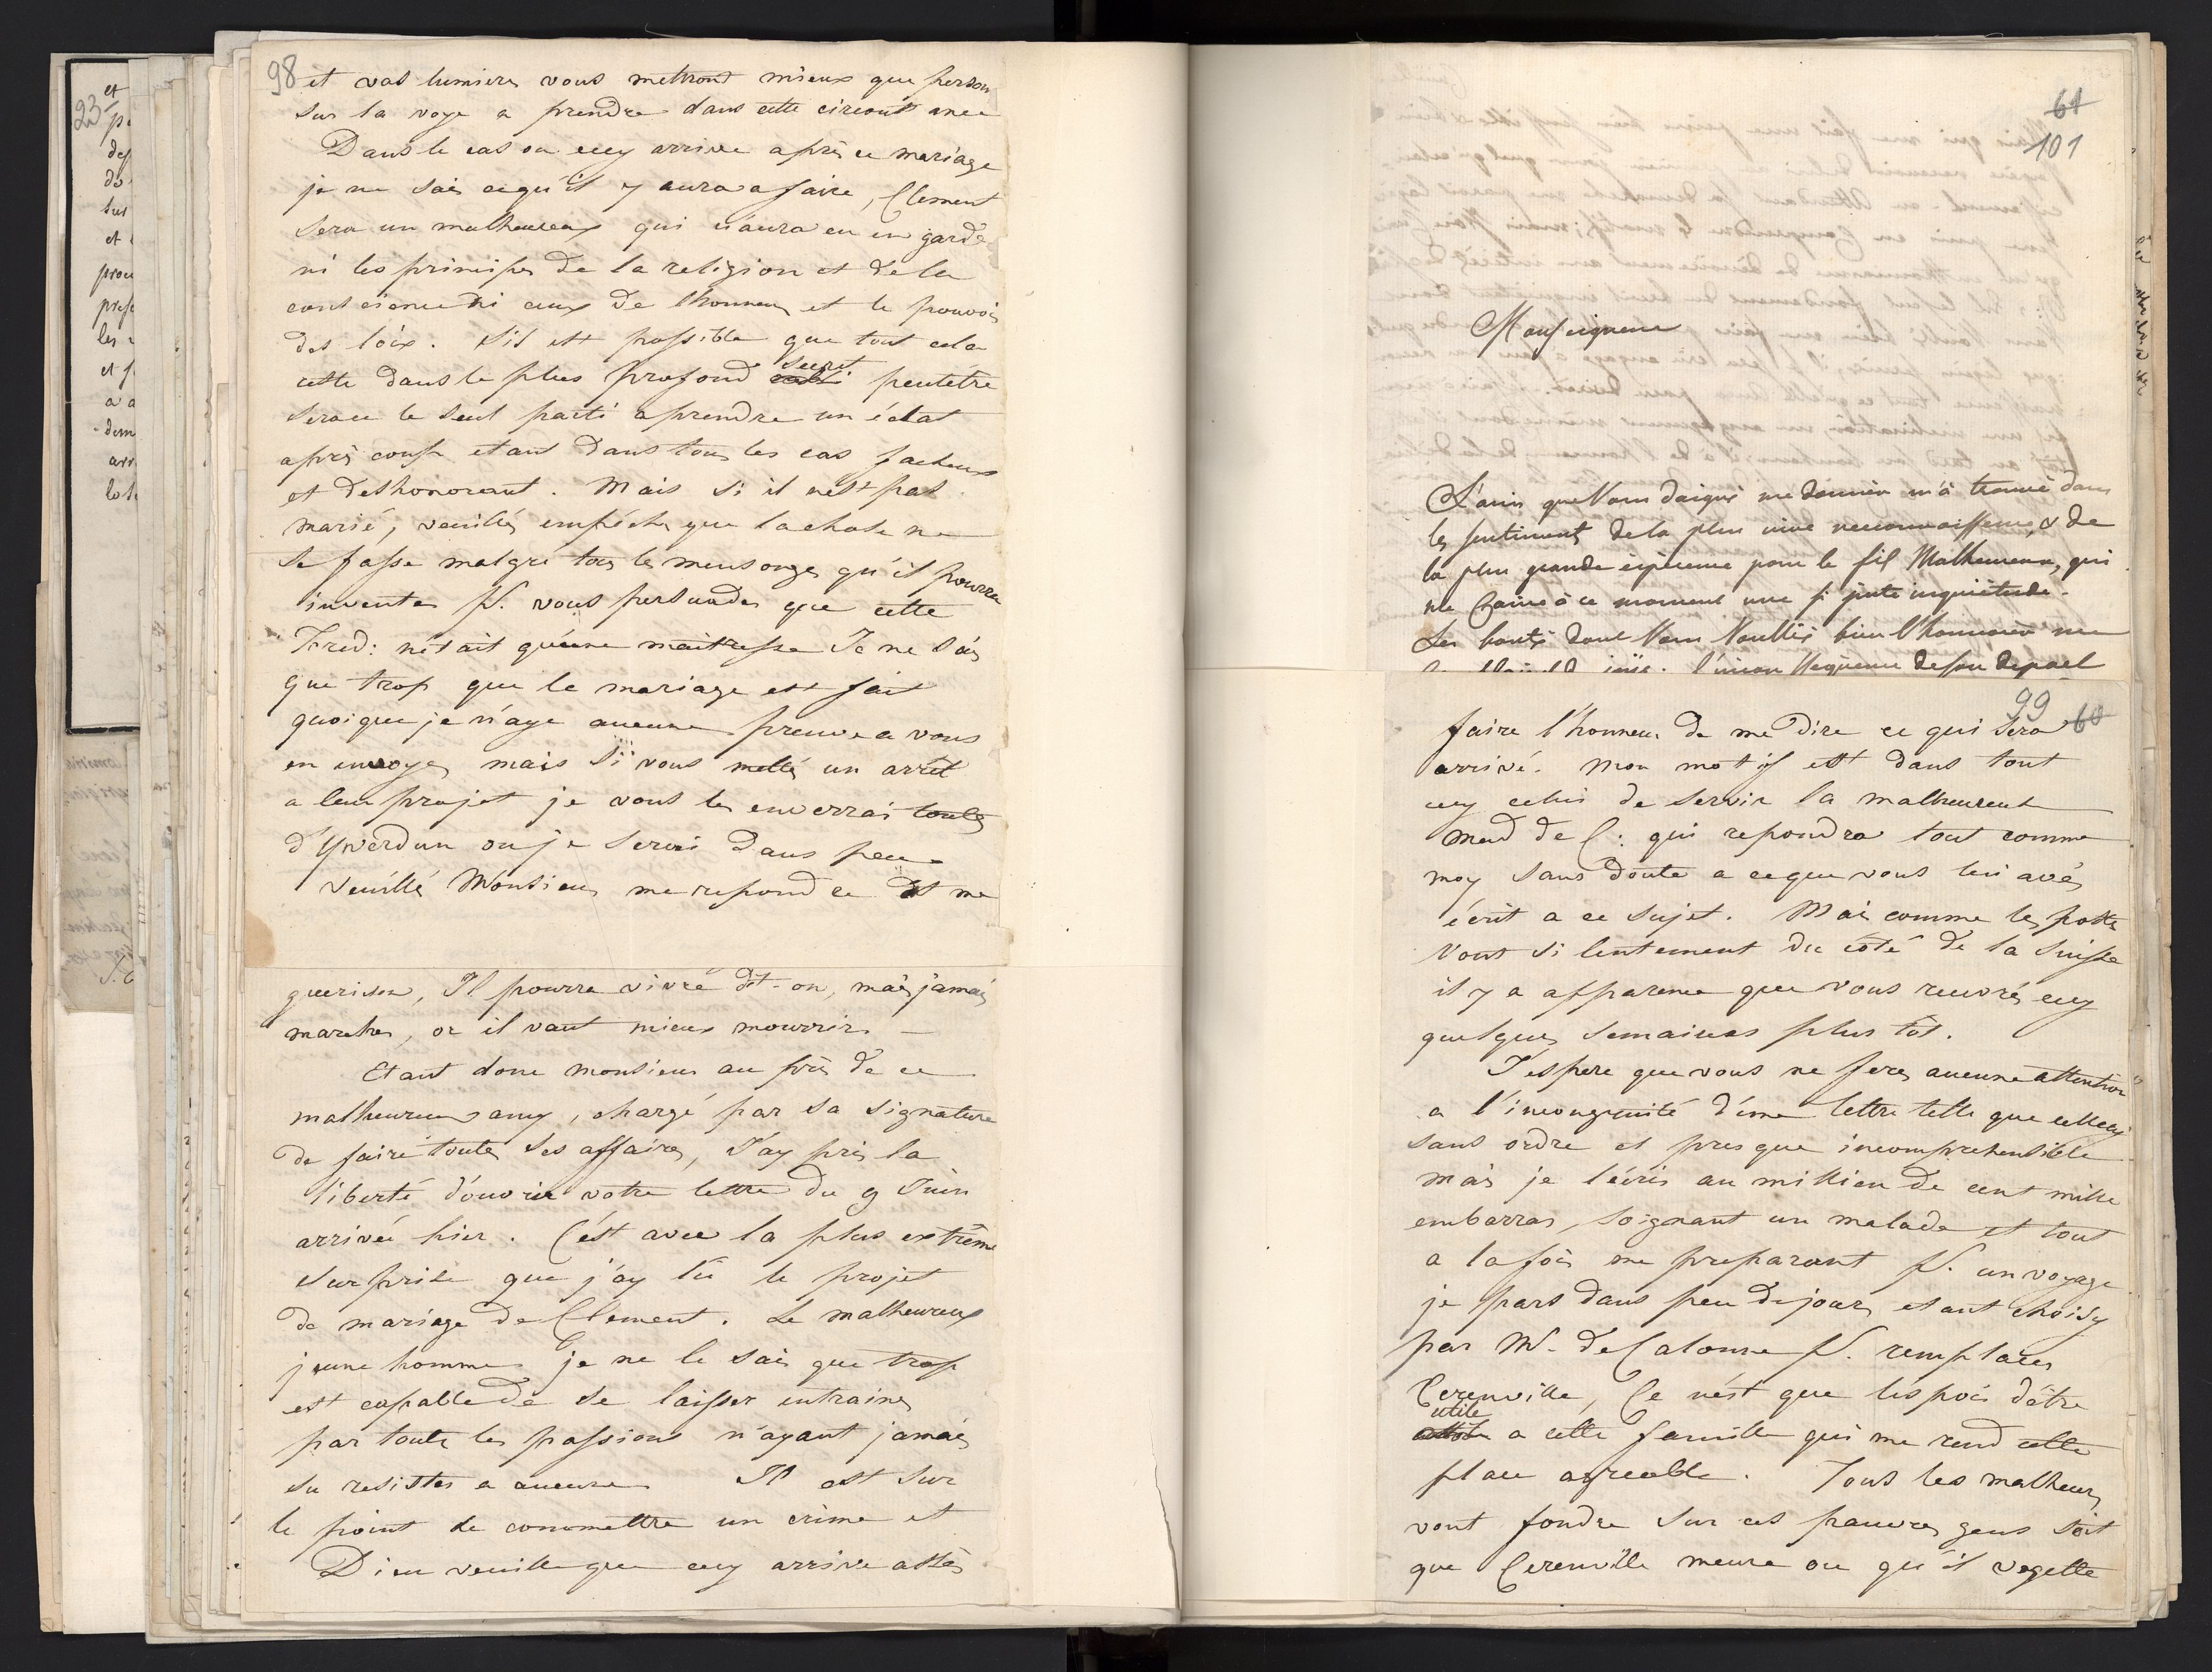 98
et vos lumieres vous mettront mieux que person
sur la voye a prendre dans cette circonstance
Dans le cas ou cecy arrive après ce mariage
je ne sais ce qu'il y aura a faire, Clement
sera un malheureux qui n'aura eu en garde
ni les principes de la religion et de la
conscience ni ceux de l'honneur et le pouvoir
des loix. S'il est possible que tout cela
reste dans le plus profond secret peutetre
sera ce le seul parti a prendre un éclat
après coup etant dans tous les cas facheux
et deshonorant. Mais si il n'est pas
marié, veuillés empécher que la chose ne
se fasse malgré tous les mensonges qu'il pourra
inventer P. vous persuader que cette
Fred: n'était qu'une maitresse Je ne sais
que trop que le mariage est fait
quoique je n'aye aucune preuve a vous
en envoyer mais si vous mettés un arrêt
a leur projet je vous les enverrai toutes
d'Yverdun ou je serai dans peu
Veuillés Monsieur me repondre et me
guerison, Il pourra vivre dit-on, mais jamais
marcher, or il vaut mieux mourrir. —
Etant donc monsieur au près de ce
malheureux amy, chargé par sa signature
de faire toutes ses affaires, J'ay pris la
liberté d'ouvrir votre lettre du 9 Juin
arrivée hier. C'est avec la plus extrême
surprise que j'ay lu le projet
de mariage de Clement. Le malheureux
jeune homme je ne le sais que trop
est capable de se laisser entrainer
par toutes les passions n'ayant jamais
su resister a aucune Il est sur
le point de commettre un crime et
Dieu veuille que cecy arrive assés
61
101
Monseigneur
L'avis que Vous daignés me donner m'a trouvé dans
les sentiments de la plus vive reconnaissance, & de
la plus grande épreuve pour le fils Malheureux, qui
me cause à ce moment une si juste inquiétude.
Les bontés dont Vous Voulliés bien l'honorer me
99 60
faire l'honneur de me dire ce qui sera
arrivé. Mon motif est dans tout
cecy celui de servir la malheureuse
Mad de C: qui repondra tout comme
moy sans doute a ce que vous lui avés
écrit a ce sujet. Mais comme les postes
vont si lentement du coté de la Suisse
il y a apparence que vous recevrés cecy
quelques semaines plus tôt.
J'espere que vous ne feres aucune attention
a l'incongruité d'une lettre telle que celle cy
sans ordre et presque incomprehensible
mais je l'écris au millieu de cent mille
embarras, soignant un malade et tout
a la fois me preparant P. un voyage
je pars dans peu de jours, etant choisy
par Mr. de Calonne P. remplacer
Cerenville, Ce n'est que l'espoir d'être
utile a cette famille qui me rend cette
place agreable. Tous les malheurs
vont fondre sur ces pauvres gens soit
que Cerenville meure ou qu'il vegette